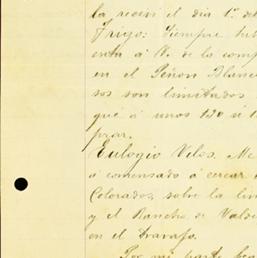 la recibí el dia 1º del
Trigo: Siempre
esta á Vd. de la comp
en el Peñon Blanco
sos son limitados
que á unos 120 ó 1
prar.
Eulogio Velos. Me
á comensado á cercar
Colorados, sobre la lin
y el Rancho de Valde
en el travajo.
Por mi parte